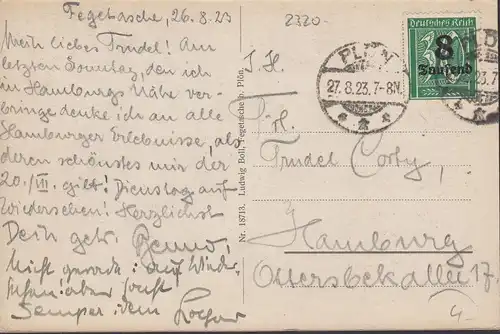 Fegetasche, 26.8.23
Mein liebes Trudel! Am
letzten Sonntag, den ich
in Hamburgs Nähe ver-
bringe denke ich an alle
Hamburger Erlebnisse, als
deren schönstes mir der
20./VII. gilt! Dienstag auf
Wiedersehen! Herzlichst
Dein getr.
Nicht gerade: auf Wieder-
sehen! aber sonst
Semper idem
2320.
I. H.
Nr. 18713. Ludwig Boll, Fegetasche b. Plön.
PLÖN
27.8.23.7-8N
Deutsches Reich
8
Tausend
23.7-8N
Frl.
Trudel Corby,
Hamburg
Ottersbekallee 17.